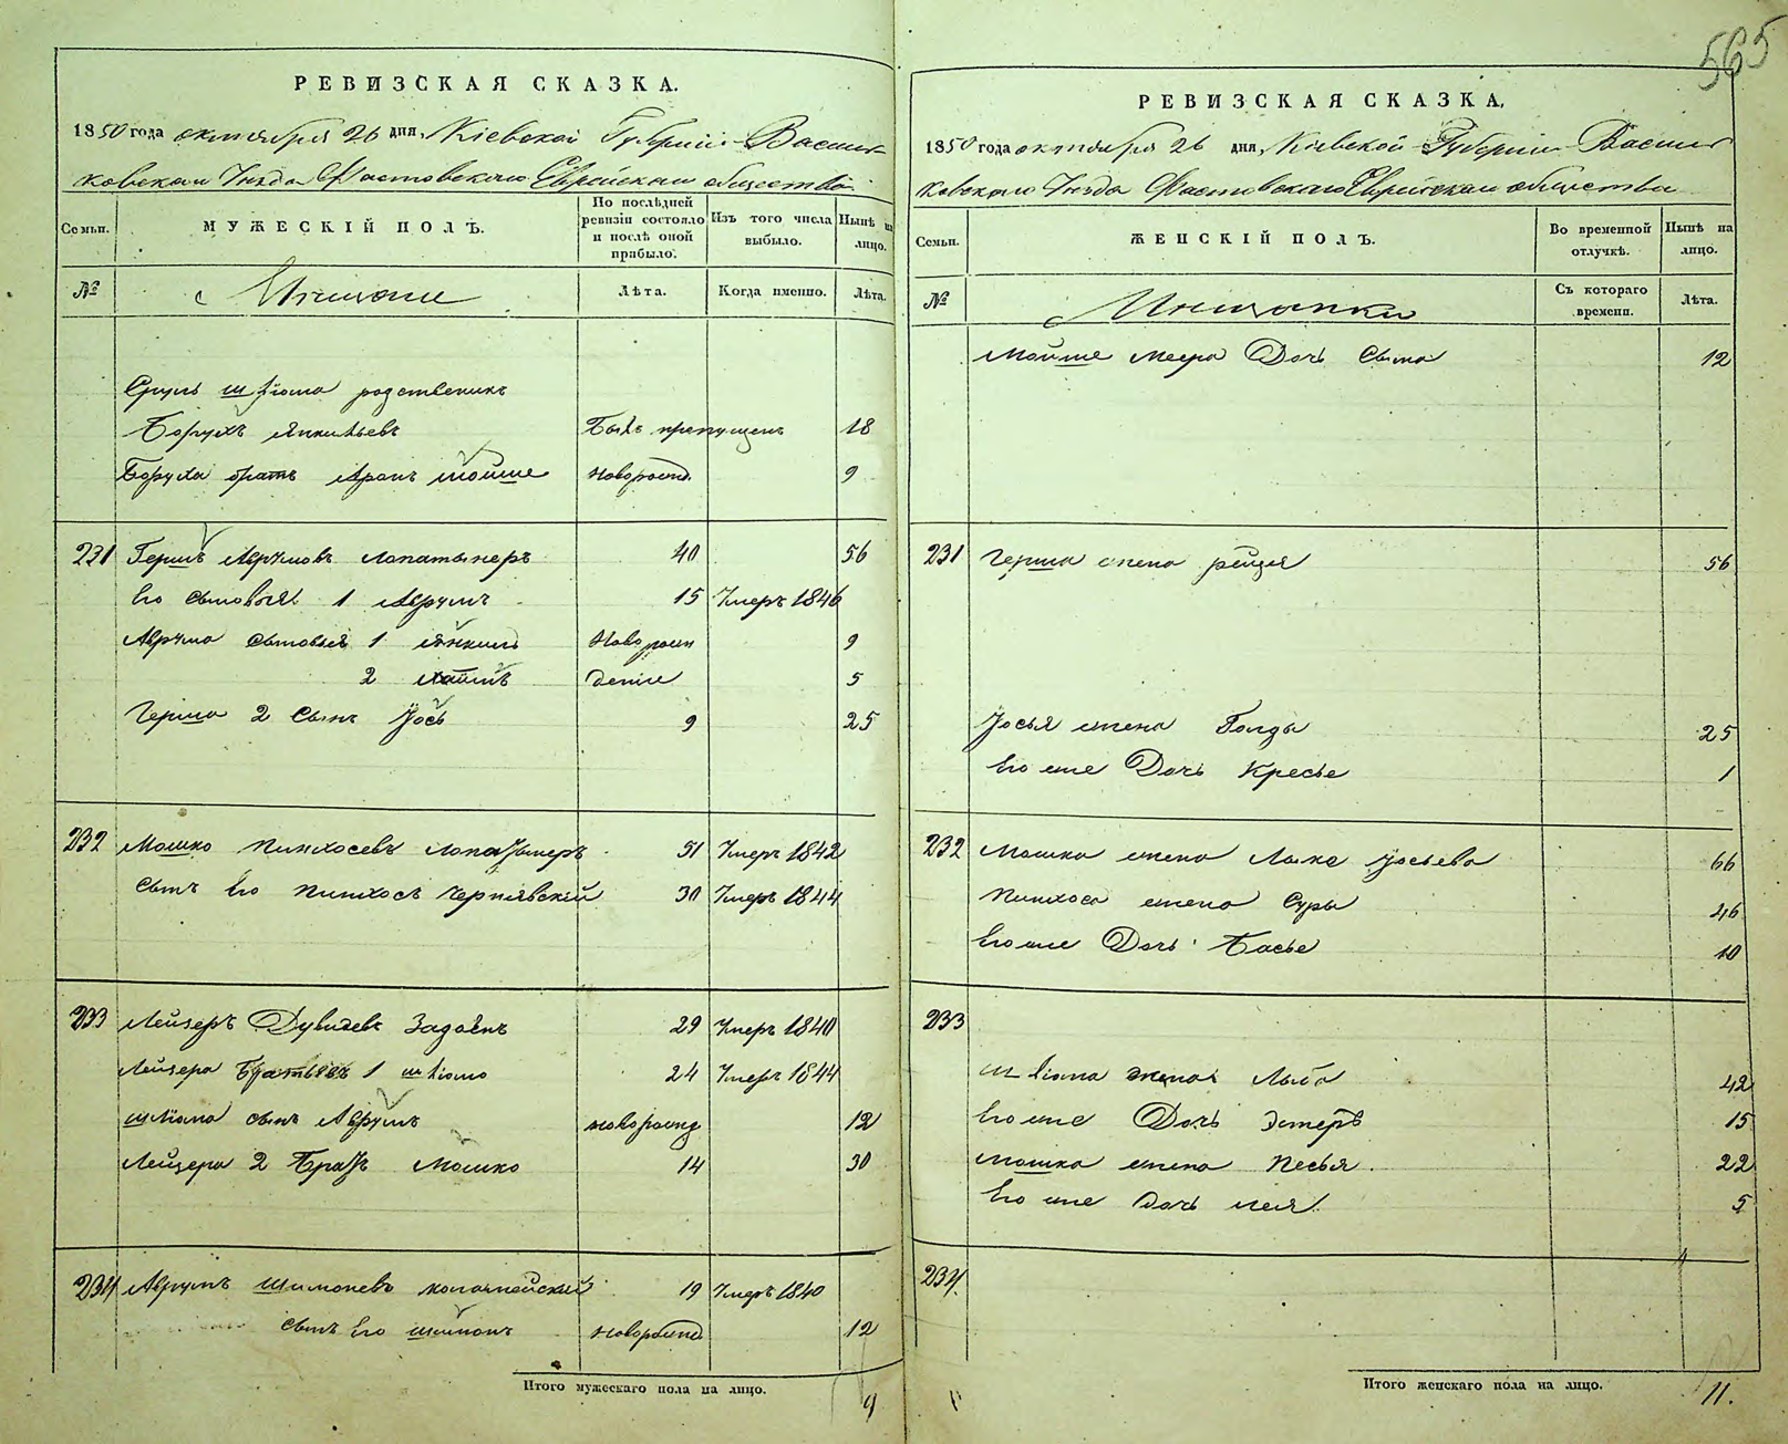 565
РЕВИЗСКАЯ СКАЗКА.
1850 года октября 26 дня, Кіевской Губерніи Василь
ковскаго Уѣзда Фастовскаго Еврейскаго общества
Семьи.
МУЖЕСКІЙ ПОЛЪ.
По послѣдней ревизіи состояло и послѣ оной прибыло.
Изъ того числа выбыло.
Нынѣ на лицо.
№
Мѣщане
Лѣта.
Когда именно.
Лѣта.
Сруль Шлёма родственикъ
Борухъ Янкильевъ Былъ пропущенъ 18
Боруха братъ Аронъ Мойше новорожд. 9
231 Гершъ Аврумовъ Лопатынеръ 40 56
Его сыновья 1 Аврумъ 15 Умеръ 1846
Аврума сыновья 1 Янкиль Новорож 9
2 Хаимъ деніе 5
Герша 2 Сынъ Йось 9 25
232 Мошко Пинхосевъ Лопатынеръ 51 Умеръ 1842
Сынъ Его Пинхосъ Чернявскій 30 Умеръ 1844
233 Лейзеръ Дувидевъ 29 Умеръ 1840
Лейзера Братья 1 Шлёмо 24 Умеръ 1844
Шлёма сынъ Аврумъ новорожд 12
Лейзера 2 Братъ Мошко 14 30
234 Аврумъ Шимоневъ 19 Умеръ 1840
Сынъ Его Шимонъ новорожд 12
Итого мужескаго пола на лицо.
9
РЕВИЗСКАЯ СКАЗКА.
1850 года октября 26 дня, Кіевской Губерніи Василь
ковскаго Уѣзда Фастовскаго Еврейскаго общества
Семьи.
ЖЕНСКІЙ ПОЛЪ.
Во временной отлучкѣ.
Нынѣ на лицо.
№
Мѣщанки
Съ котораго времени.
Лѣта.
Мойше Меера Дочь Сыма 12
231 Герша жена Рейзя 56
Йосья жена Голды 25
Его же Дочь Кресье 1
232 Мошка жена Лыке Йосьева 66
Пинхоса жена Суры 46
Его же Дочь Басье 10
233
Шлёма жена Лыба 42
Его же Дочь Эстеръ 15
Мошка жена Песья. 22
Его же дочь Лея. 5
234.
Итого женскаго пола на лицо.
11.